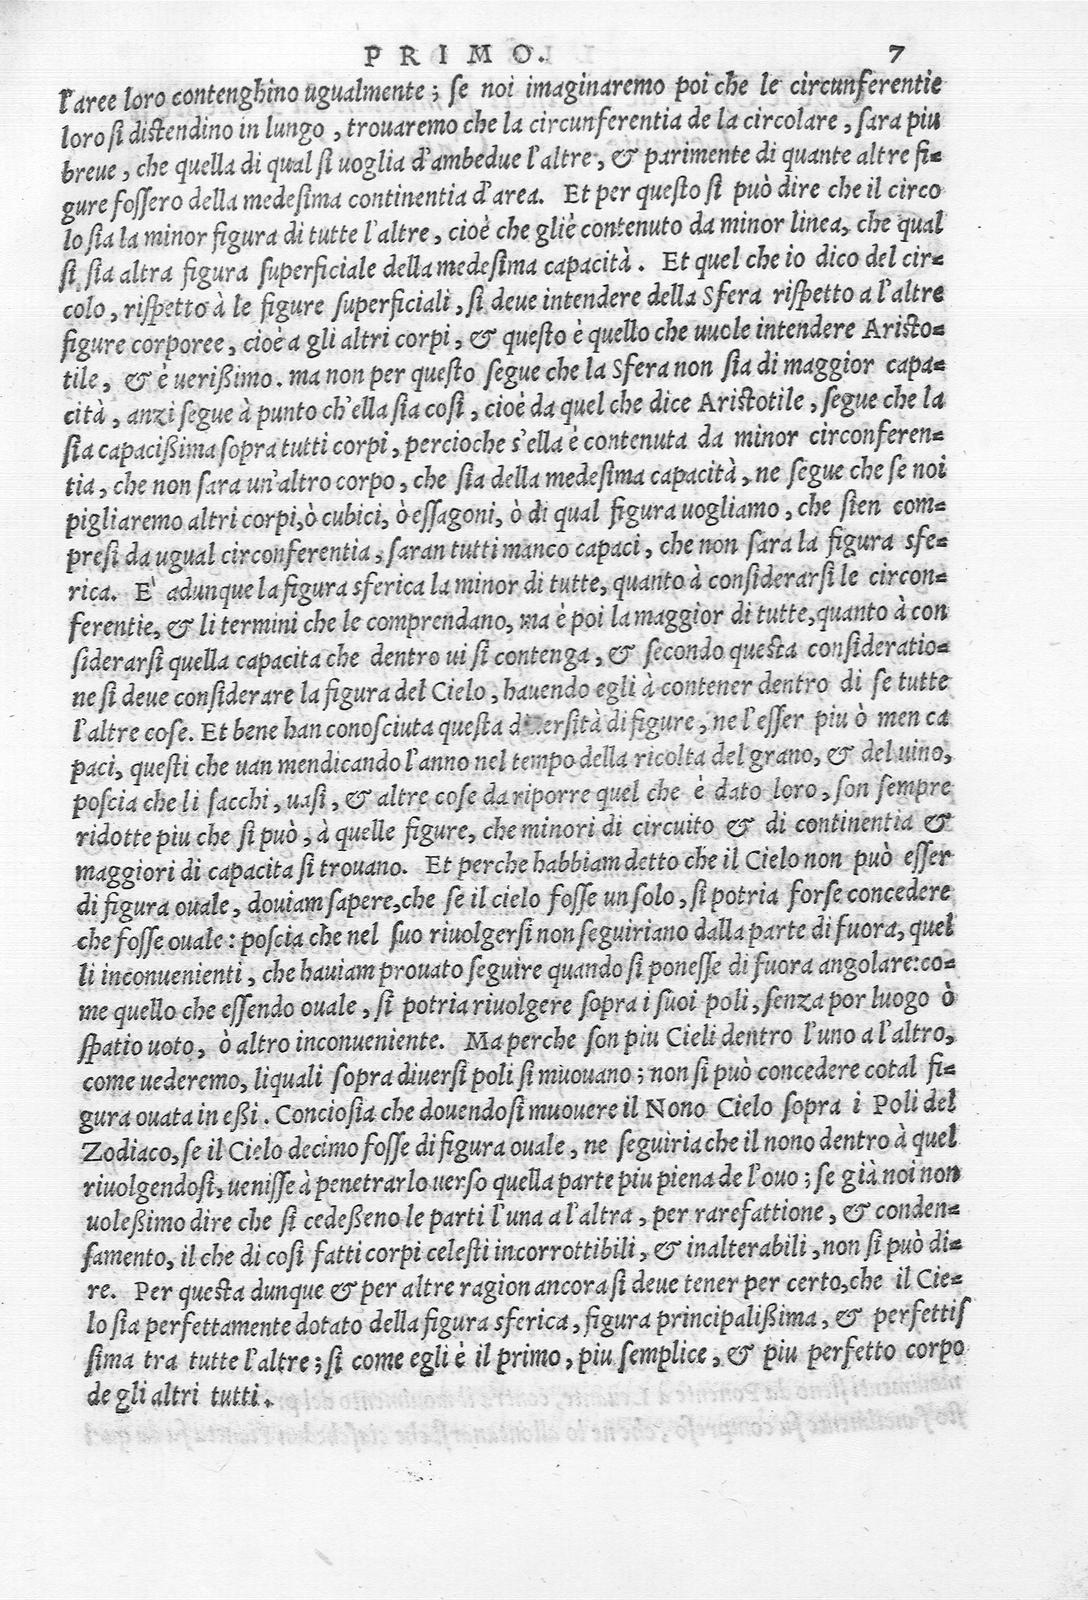 PRIMO. 7
l'aree loro contenghino ugualmente; se noi imaginaremo poi che le circunferentie
loro si distendino in lungo, trouaremo che la circunferentia de la circolare, sara piu
breue, che quella di qual si uoglia d'ambedue l'altre, & parimente di quante altre fi=
gure fossero della medesima continentia d'area. Et per questo si può dire che il circo
lo sia la minor figura di tutte l'altre, cioè che gliè contenuto da minor linea, che qual
si sia altra figura superficiale della medesima capacità. Et quel che io dico del cir=
colo, rispetto à le figure superficiali, si deue intendere della Sfera rispetto a l'altre
figure corporee, cioè a gli altri corpi, & questo è quello che uuole intendere Aristo=
tile, & è uerißimo. ma non per questo segue che la Sfera non sia di maggior capa=
cità, anzi segue à punto ch'ella sia così, cioè da quel che dice Aristotile, segue che la
sia capacißima sopra tutti corpi, percioche s'ella è contenuta da minor circonferen=
tia, che non sara un'altro corpo, che sia della medesima capacità, ne segue che se noi
pigliaremo altri corpi, ò cubici, ò essagoni, ò di qual figura uogliamo, che sien com=
presi da ugual circonferentia, saran tutti manco capaci, che non sara la figura sfe=
rica. E' adunque la figura sferica la minor di tutte, quanto à considerarsi le circon=
ferentie, & li termini che le comprendano, ma è poi la maggior di tutte, quanto à con
siderarsi quella capacita che dentro ui si contenga, & secondo questa consideratio=
ne si deue considerare la figura del Cielo, hauendo egli à contener dentro di se tutte
l'altre cose. Et bene han conosciuta questa diuersità di figure, ne l'esser piu ò men ca
paci, questi che uan mendicando l'anno nel tempo della ricolta del grano, & del uino,
poscia che li sacchi, uasi, & altre cose da riporre quel che è dato loro, son sempre
ridotte piu che si può, à quelle figure, che minori di circuito & di continentia &
maggiori di capacita si trouano. Et perche habbiam detto che il Cielo non può esser
di figura ouale, douiam sapere, che se il cielo fosse un solo, si potria forse concedere
che fosse ouale: poscia che nel suo riuolgersi non seguiriano dalla parte di fuora, quel
li inconuenienti, che hauiam prouato seguire quando si ponesse di fuora angolare: co=
me quello che essendo ouale, si potria riuolgere sopra i suoi poli, senza por luogo ò
spatio uoto, ò altro inconueniente. Ma perche son piu Cieli dentro l'uno a l'altro,
come uederemo, liquali sopra diuersi poli si muouano; non si può concedere cotal fi=
gura ouata in eßi. Conciosia che douendosi muouere il Nono Cielo sopra i Poli del
Zodiaco, se il Cielo decimo fosse di figura ouale, ne seguiria che il nono dentro à quel
riuolgendosi, uenisse à penetrarlo uerso quella parte piu piena de l'ouo; se già noi non
uoleßimo dire che si cedeßeno le parti l'una a l'altra, per rarefattione, & conden=
samento, il che di così fatti corpi celesti incorrottibili, & inalterabili, non si può di=
re. Per questa dunque & per altre ragion ancora si deue tener per certo, che il Cie=
lo sia perfettamente dotato della figura sferica, figura principalißima, & perfettis
sima tra tutte l'altre; si come egli è il primo, piu semplice, & piu perfetto corpo
de gli altri tutti.